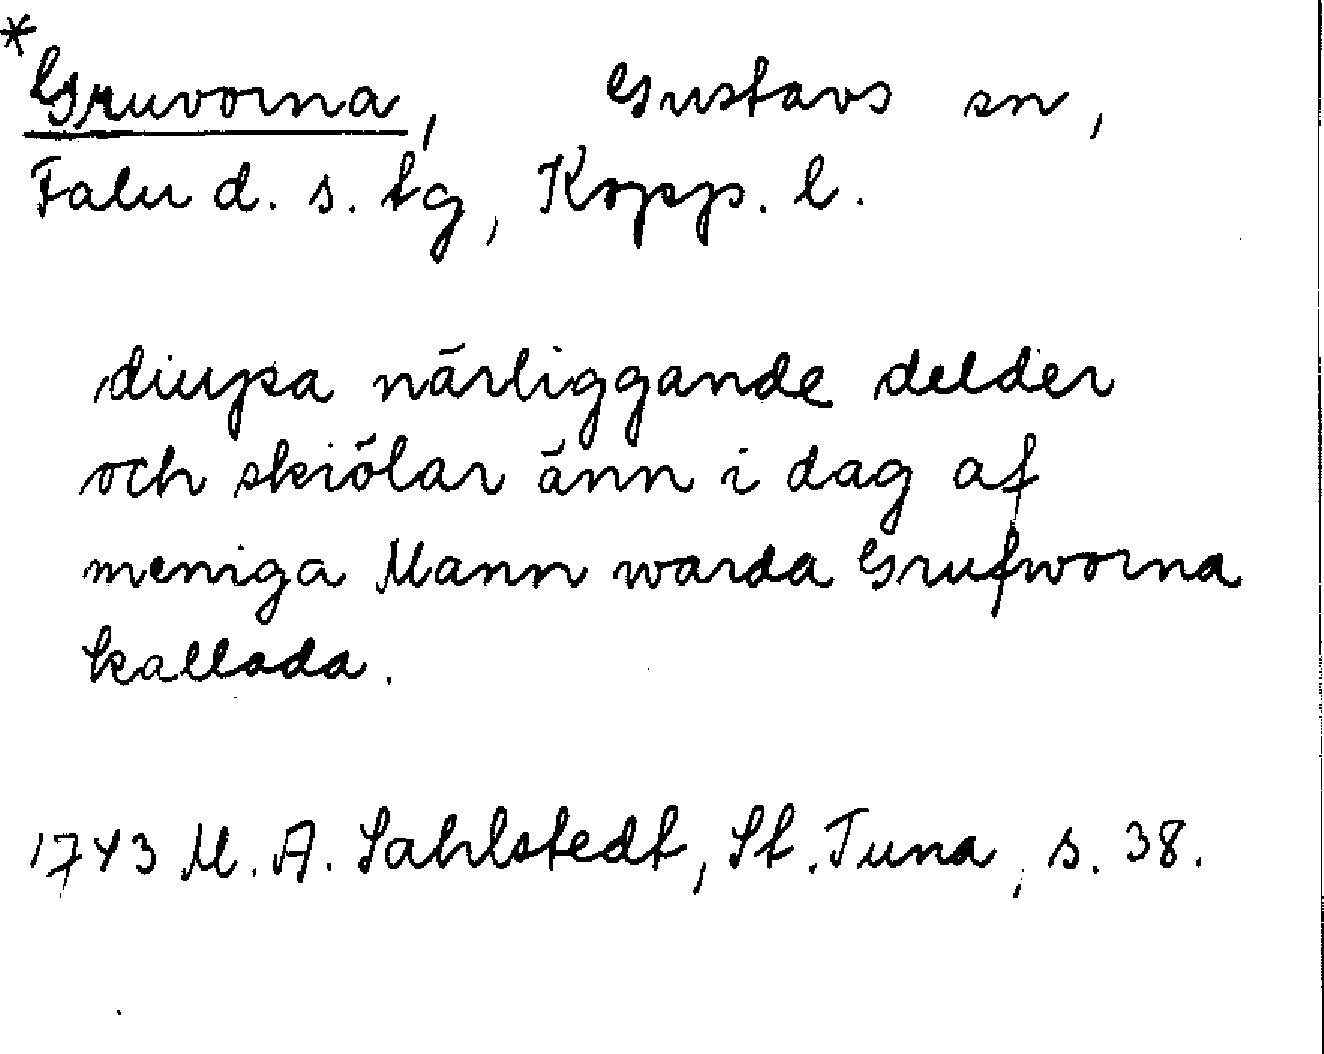 *
Gruvorna, Gustavs sn,
Falu d. s. tg, Kopp. l.
diupa närliggande delder
och skiölar änn i dag af
meniga Mann warda Grufworna
kallada.
1743 M. A. Sahlstedt, St. Tuna, s. 38.